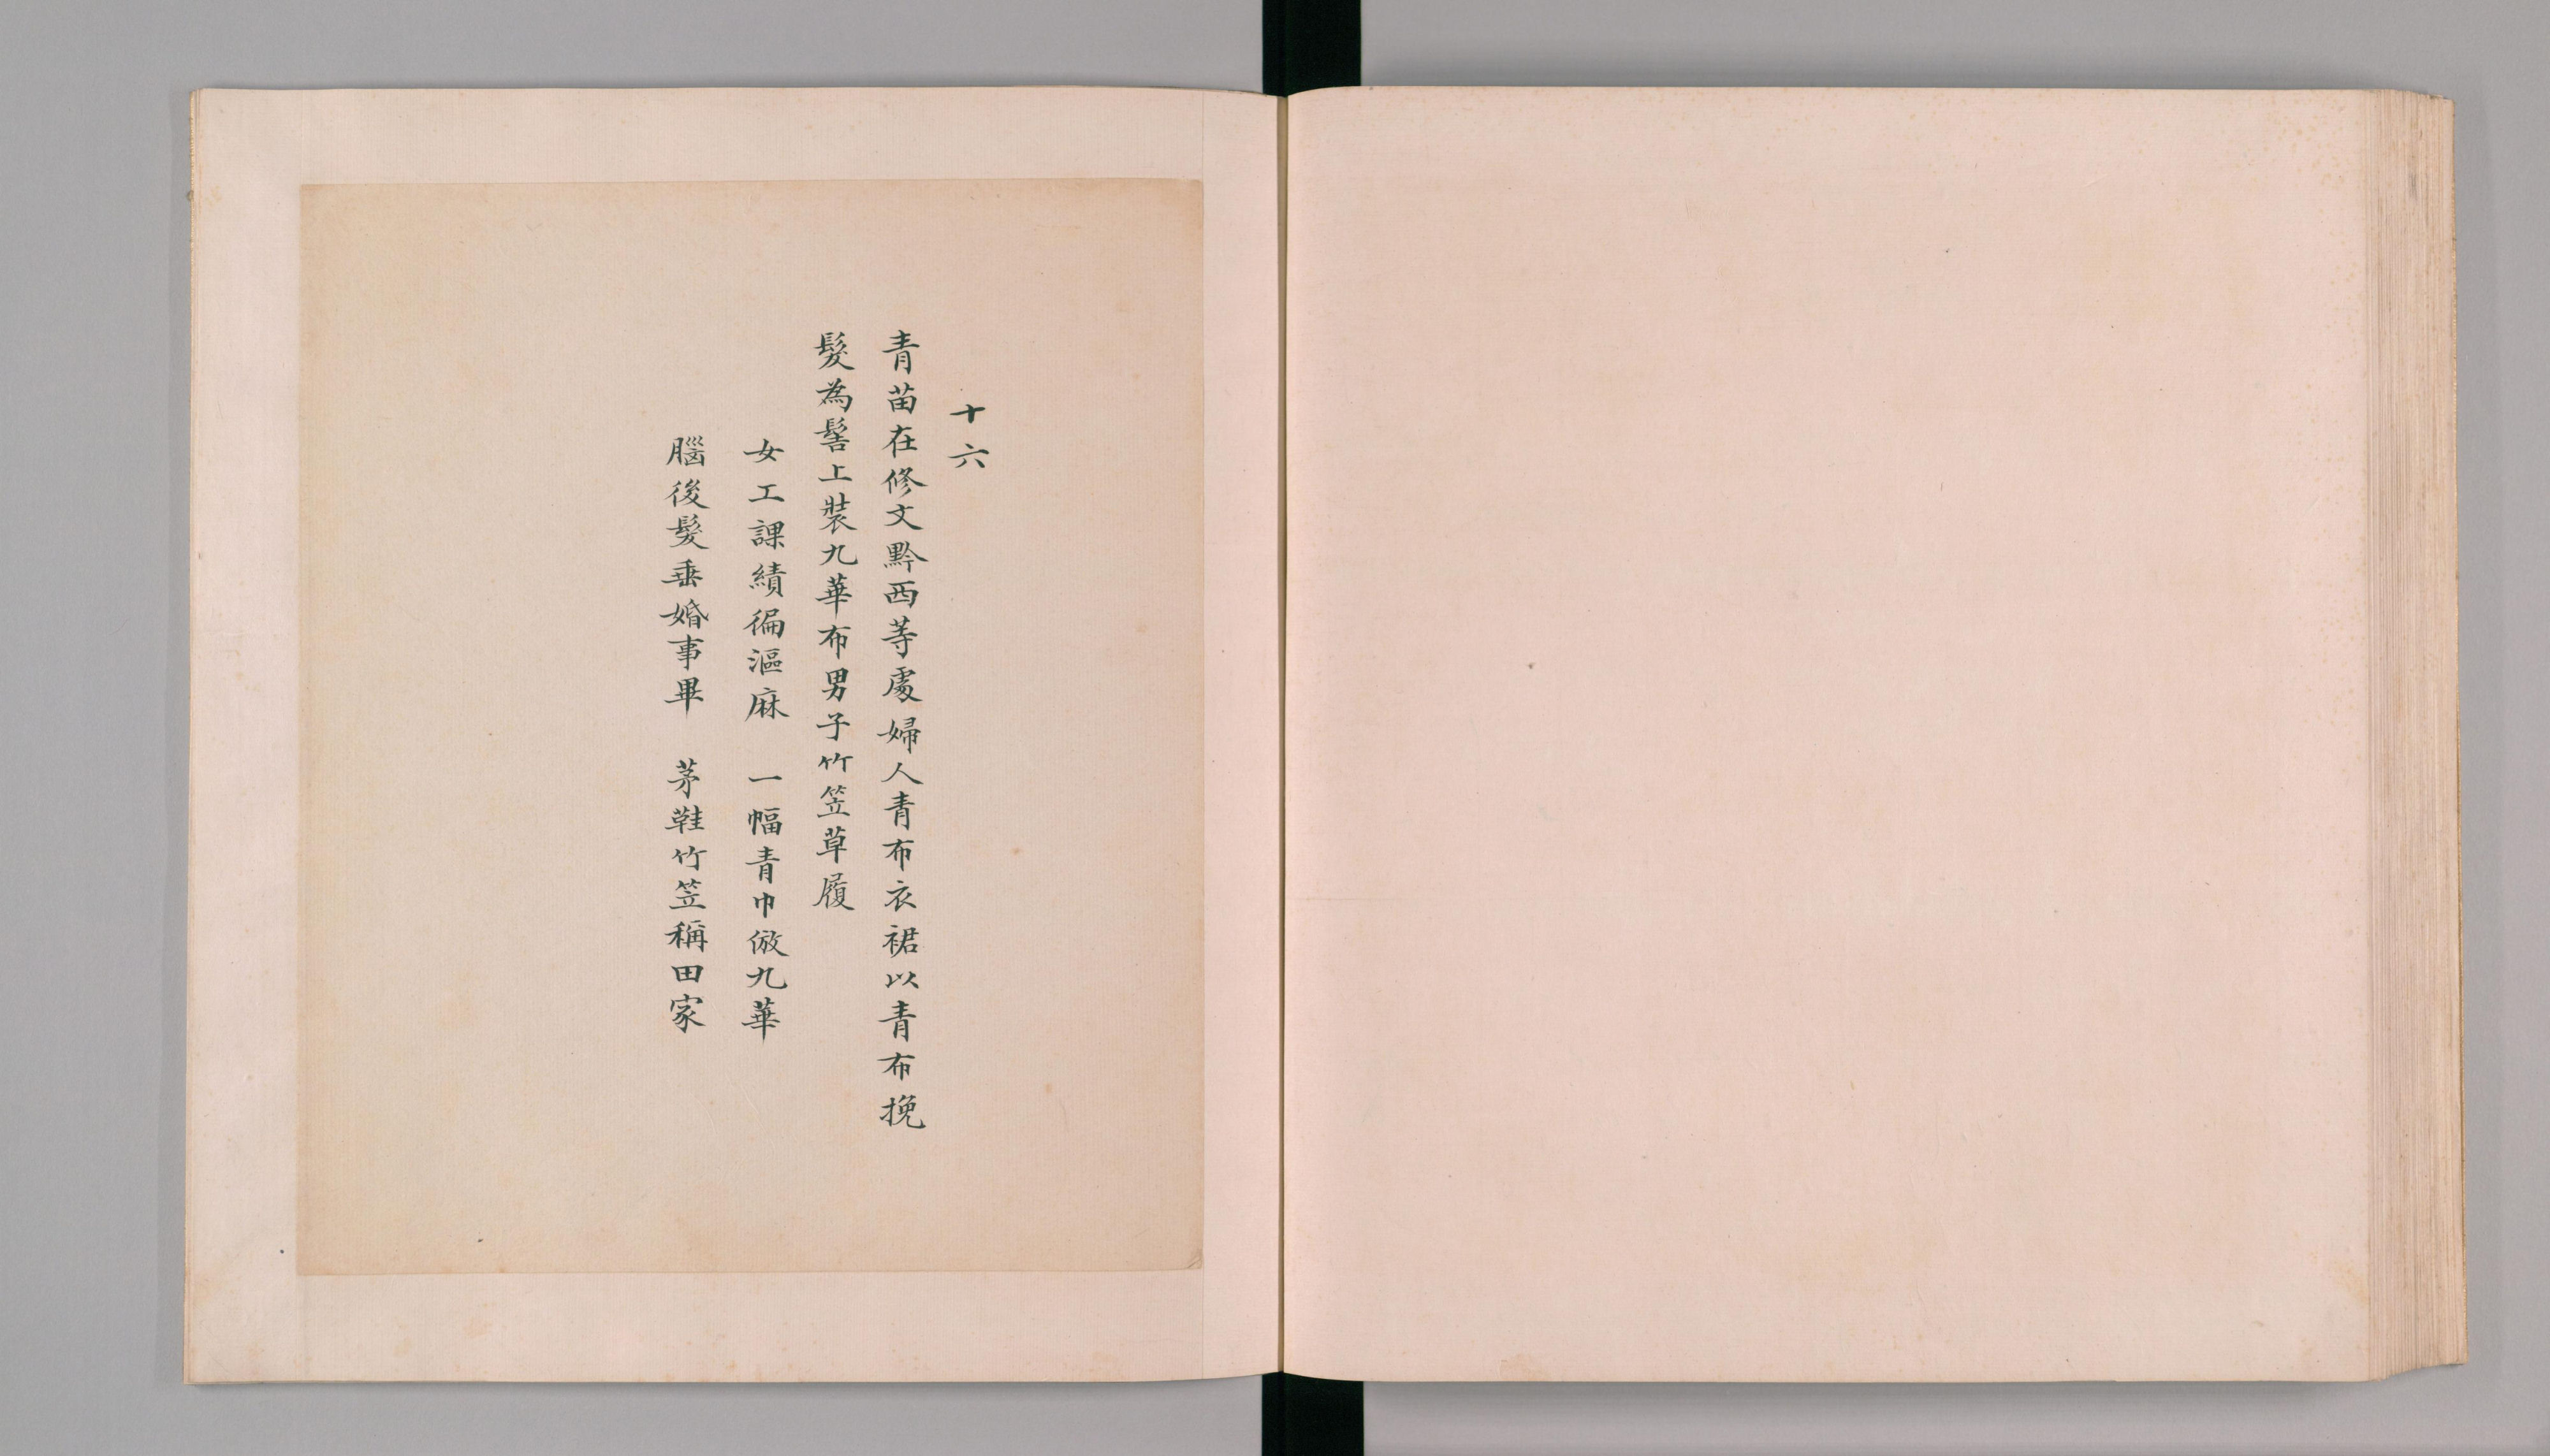 十六
青苗在修文黔西等處婦人青布衣裙以青布挽
髮為髻上裝九華布男子竹笠草履
女工課績徧漚麻 一幅青巾倣九華
腦後髮垂婚事畢 茅鞋竹笠稱田家